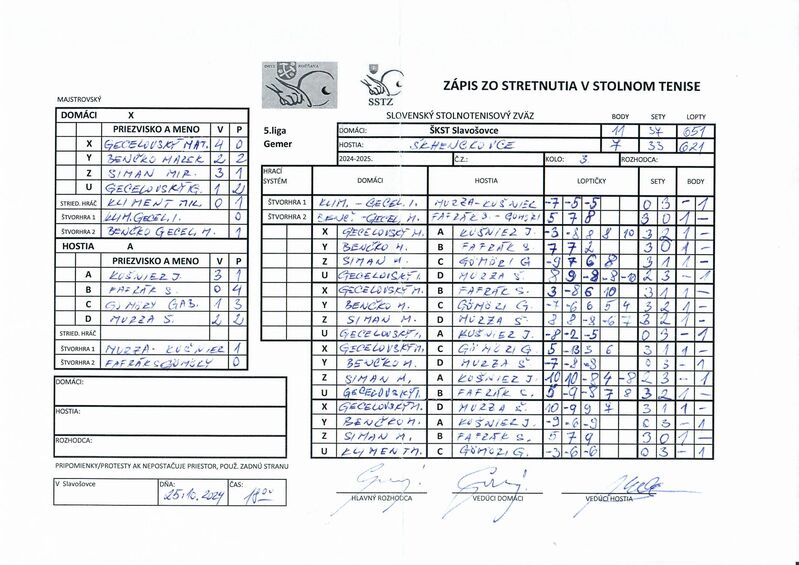 ZÁPIS ZO STRETNUTIA V STOLNOM TENISE
SSTZ
MAJSTROVSKÝ
SLOVENSKÝ STOLNOTENISOVÝ ZVÄZ BODY SETY LOPTY
DOMÁCI X
5.liga DOMÁCI: ŠKST Slavošovce 11 37 651
Gemer HOSTIA: 7 33 621
2024-2025. Č.Z.: KOLO: 3. ROZHODCA:
PRIEZVISKO A MENO V P
X GECELOVSKÝ MAT. 4 0
Y BENČKO MAREK 2 2
Z SIMAN MIR. 3 1
U GECELOVSKÝ 1 2
STRIED. HRÁČ KLIMENT MIR. 0 1
ŠTVORHRA 1 KLIM. GECEL. I. 0
ŠTVORHRA 2 BENČKO GECEL. M. 1
HOSTIA A
PRIEZVISKO A MENO V P
A KUŠNIER J. 3 1
B FAFRÁK S. 0 4
C GÖMÖRY GAB. 1 3
D MUZZA Š. 2 2
STRIED. HRÁČ
ŠTVORHRA 1 MUZZA KUŠNIER 1
ŠTVORHRA 2 0
HRACÍ SYSTÉM DOMÁCI HOSTIA LOPTIČKY SETY BODY
ŠTVORHRA 1 KLIM. - GECEL. I. MUZZA - KUŠNIER -7 -5 -5 0 3 - 1
ŠTVORHRA 2 BENČ - GECEL. M. FAFRÁK S. - GÖMÖRI 5 7 8 3 0 1 -
X GECELOVSKÝ M. A KUŠNIER J. -3 -8 8 8 10 3 2 1 -
Y BENČKO M. B FAFRÁK S. 7 7 2 3 0 1 -
Z SIMAN M. C GÖMÖRI G -9 7 6 8 3 1 1 -
U GECELOVSKÝ I. D MUZZA Š. 8 9 -8 -8 -10 2 3 - 1
X GECELOVSKÝ M. B FAFRÁK S. 3 -8 6 10 3 1 1 -
Y BENČKO M. C GÖMÖRI G. -7 -6 6 5 4 3 2 1 -
Z SIMAN M. D MUZZA Š. 8 8 -8 -6 7 3 2 1 -
U GECELOVSKÝ I. A KUŠNIER J. -8 -2 -5 0 3 - 1
X GECELOVSKÝ M. C GÖMÖRI G. 5 -13 3 6 3 1 1 -
Y BENČKO M. D MUZZA Š -7 -8 -8 0 3 - 1
Z SIMAN M. A KUŠNIER J. 10 10 -8 -4 -8 2 3 - 1
U GECELOVSKÝ I. B FAFRÁK S. 5 -9 -5 7 8 3 2 1 -
X GECELOVSKÝ M. D MUZZA Š. 10 -9 9 7 3 1 1 -
Y BENČKO M. A KUŠNIER J. -9 -6 -9 0 3 - 1
Z SIMAN M. B FAFRÁK S. 5 7 9 3 0 1 -
U KLIMENT M. C GÖMÖRI G. -3 -6 -6 0 3 - 1
DOMÁCI:
HOSTIA:
ROZHODCA:
PRIPOMIENKY/PROTESTY AK NEPOSTAČUJE PRIESTOR, POUŽ. ZADNÚ STRANU
V Slavošovce DŇA: 25.10.2024 ČAS:
HLAVNÝ ROZHODCA VEDÚCI DOMÁCI VEDÚCI HOSTIA